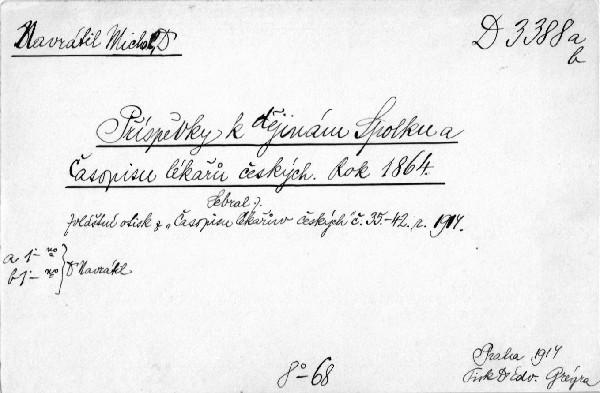 Navrátil Michal, D
D 3388 a
b
Příspěvky k dějinám Spolku a
Časopisu lékařů českých. Rok 1864.
Sebral J.
Zvláštní otisk z „Časopisu lékařův českých" č. 35.-42. r. 1914.
a 1- xo
b 1- xo
} D Navrátil
8°-68
Praha 1914
Tisk D Edv. Grégra